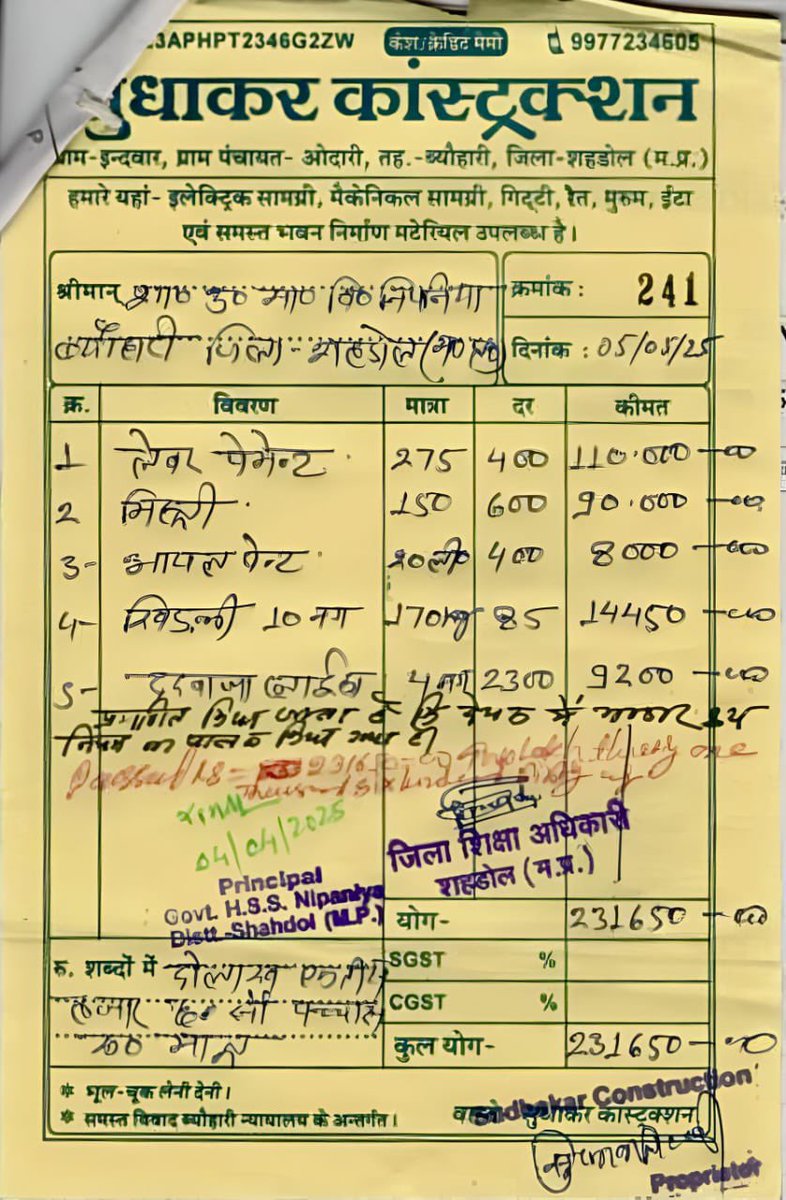 23APHPT2346G2ZW कैश/क्रेडिट मेमो 9977234605
सुधाकर कांस्ट्रक्शन
ग्राम-इन्दवार, ग्राम पंचायत- ओदारी, तह.-ब्यौहारी, जिला-शहडोल (म.प्र.)
हमारे यहां- इलेक्ट्रिक सामग्री, मैकेनिकल सामग्री, गिट्टी, रेत, मुरुम, ईटा
एवं समस्त भबन निर्माण मटेरियल उपलब्ध है।
श्रीमान् शा० उ० मा० वि० निपनिया
क्रमांक : 241
ब्यौहारी जिला-शहडोल (म०प्र०)
दिनांक : 05/05/25
क्र. विवरण मात्रा दर कीमत
1 लेबर पेमेन्ट 275 400 110.000-00
2 मिस्त्री 150 600 90.000-00
3- आयल पेन्ट 20ली० 400 8000-00
4- खिड़की 10 नग 170kg 85 14450-00
5- दरवाजा 4 नग 2300 9200-00
प्रमाणित किया जाता है कि में भण्डार क्रय
नियम का पालन किया गया है।
Passed Rs = 231650-00
04/04/2025
Principal
Govt. H.S.S. Nipaniya
Distt.-Shahdol (M.P.)
जिला शिक्षा अधिकारी
शहडोल (म.प्र.)
योग- 231650-00
रु. शब्दों में दो लाख एकतीस
हजार छः सौ पच्चास
रू० मात्र
SGST %
CGST %
कुल योग- 231650-00
* भूल-चूक लेनी देनी।
* समस्त विवाद ब्यौहारी न्यायालय के अन्तर्गत।
Sudhakar Construction
वास्ते सुधाकर कांस्ट्रक्शन
Proprietor